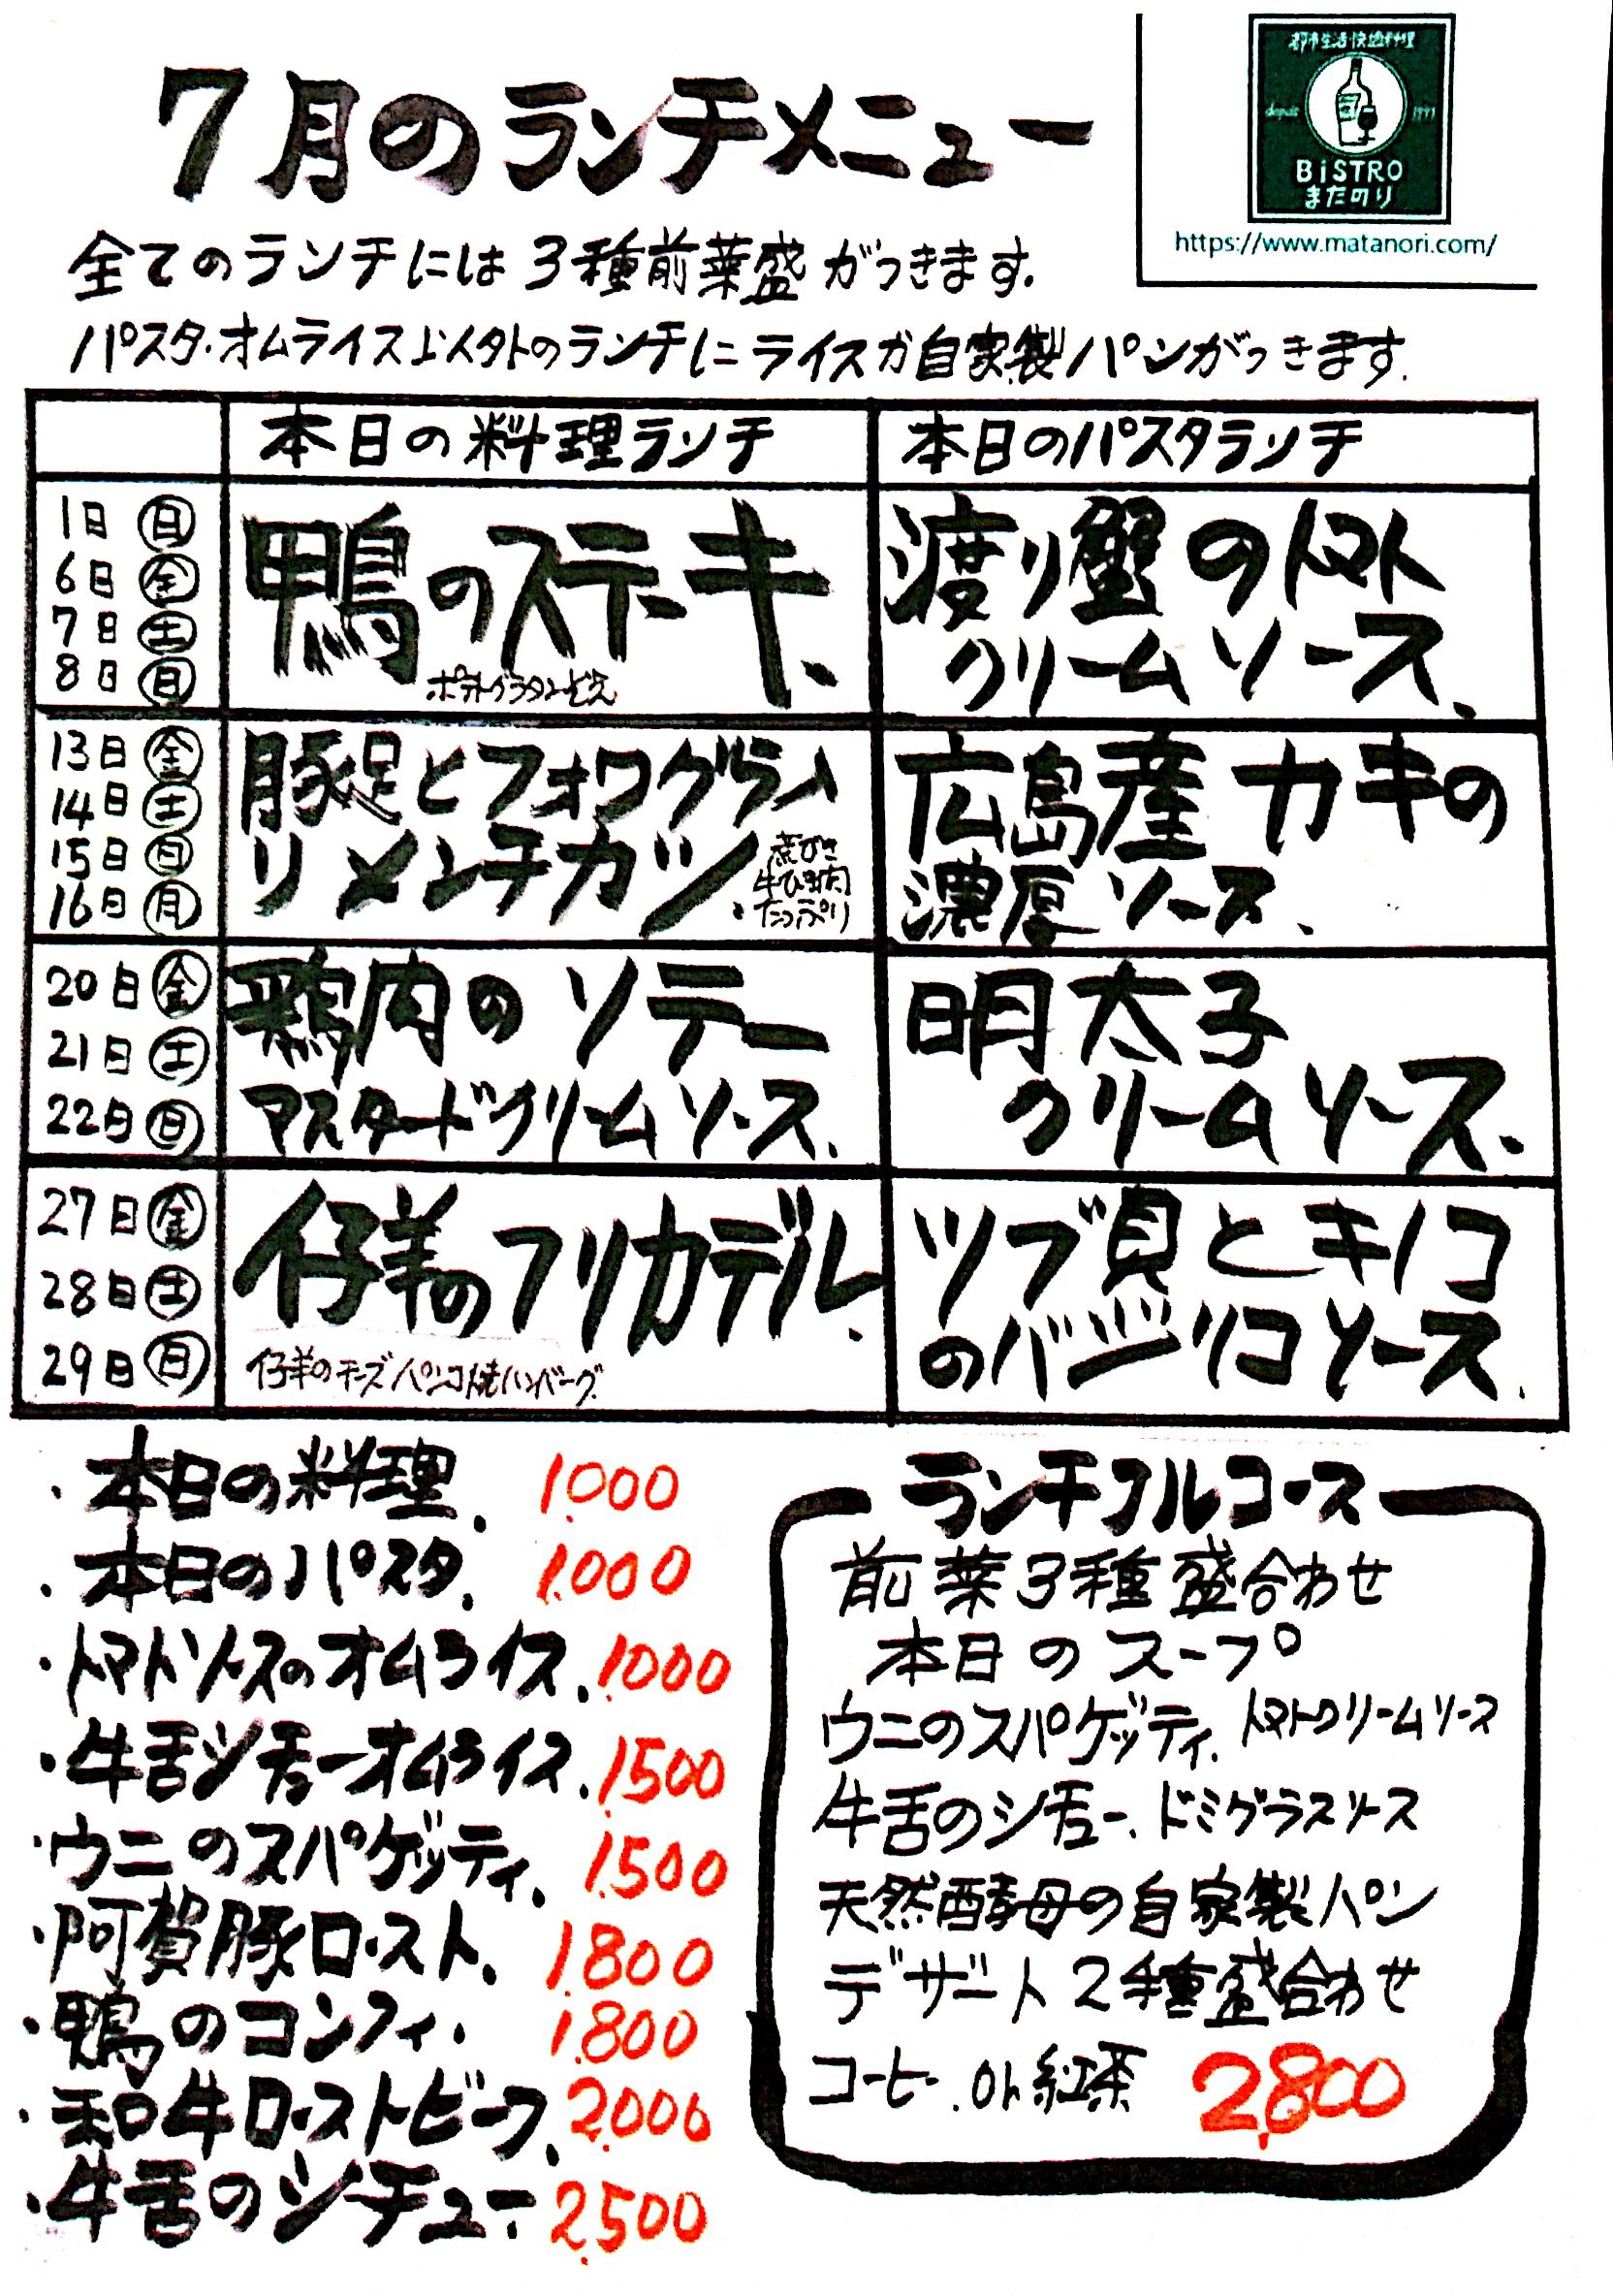 7月のランチメニュー
都市生活快適料理
depuis 1991
BiSTRO
またのり
https://www.matanori.com/
全てのランチには3種前菜盛がつきます.
パスタ・オムライス以外のランチにライスか自家製パンがつきます.
本日の料理ランチ
本日のパスタランチ
1日 日
6日 金
7日 土
8日 日
鴨のステーキ、
ポテトグラタンぞえ
渡り蟹のトマト
クリームソース、
13日 金
14日 土
15日 日
16日 月
豚足とフォワグラ入
りメンチカツ、
荒びき
牛ひき肉
たっぷり
広島産カキの
濃厚ソース、
20日 金
21日 土
22日 日
鶏肉のソテー
マスタードクリームソース、
明太子
クリームソース、
27日 金
28日 土
29日 日
仔羊のフリカデル、
仔羊のチーズパン粉焼ハンバーグ
ツブ貝とキノコ
のバジリコソース、
・本日の料理、 1,000
・本日のパスタ、 1,000
・トマトソースのオムライス、1,000
・牛舌シチューオムライス、1,500
・ウニのスパゲッティ、 1,500
・阿賀豚ロースト、 1,800
・鴨のコンフィ、 1,800
・和牛ローストビーフ、2,000
・牛舌のシチュー 2,500
ランチフルコース
前菜3種盛合わせ
本日のスープ
ウニのスパゲッティ、トマトクリームソース
牛舌のシチュー、ドミグラスソース
天然酵母の自家製パン
デザート2種盛合わせ
コーヒー or 紅茶 2,800